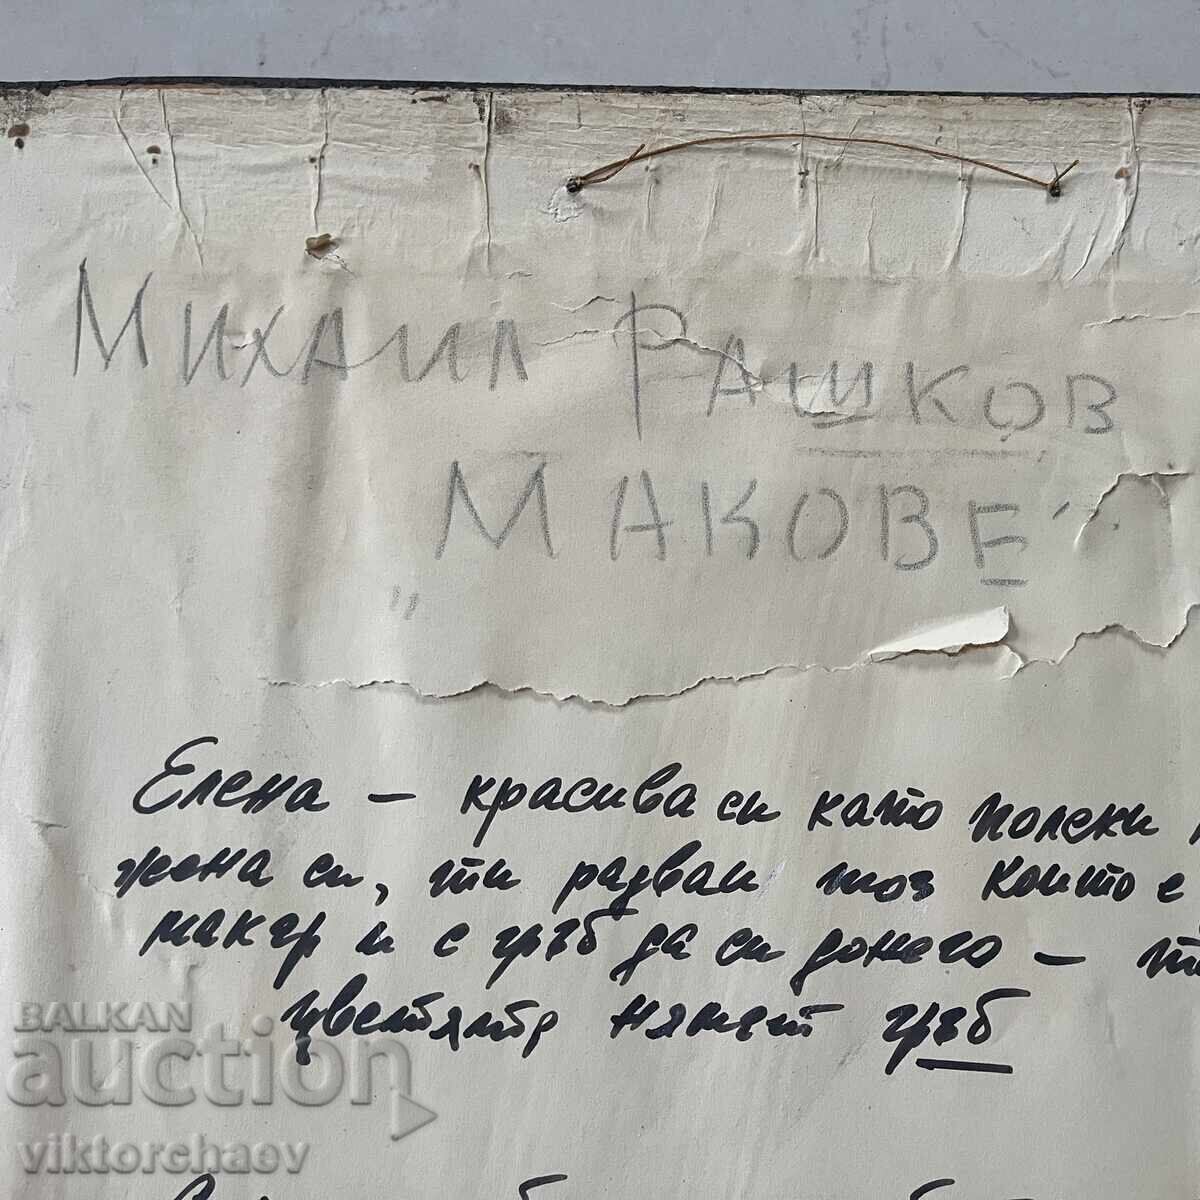 МИХАИЛ РАШКОВ
„МАКОВЕ“
Елена – красива си като полски
жена си, ти радваш тоз който е
макар и с гръб да си до него –
цветята нямат гръб
BALKAN
auction
viktorchaev